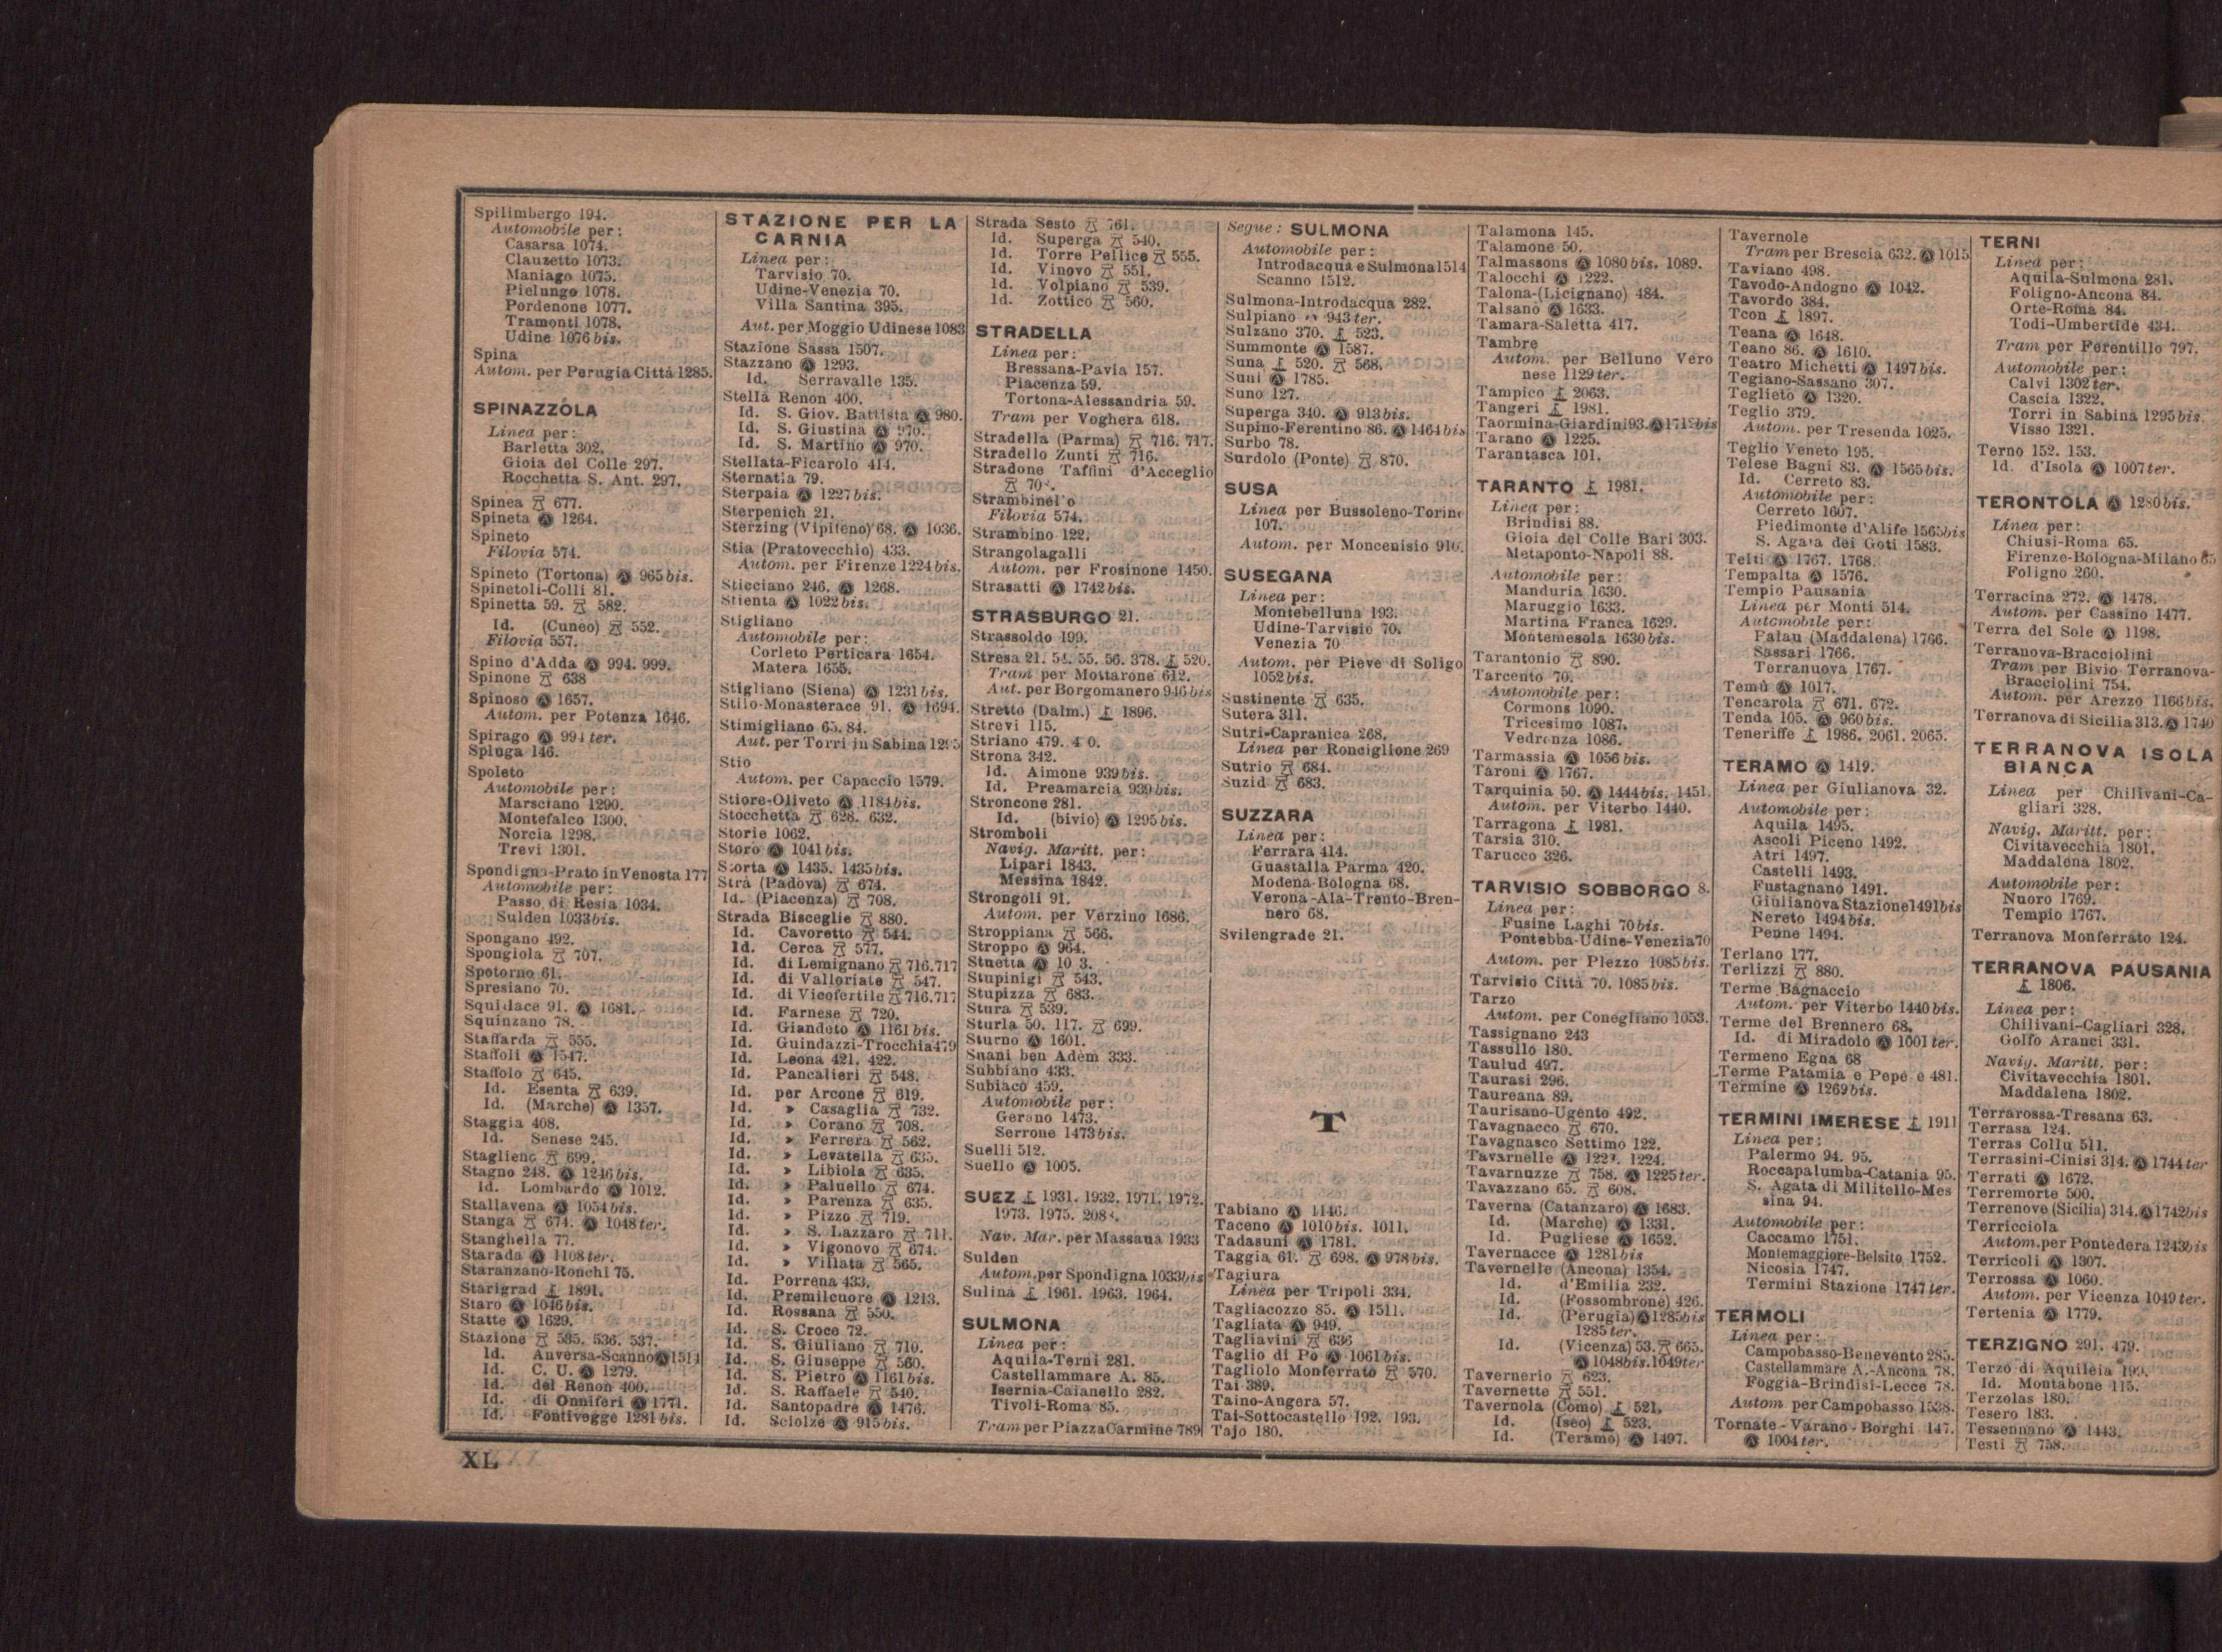 Spilimbergo 194.
Automobile per:
Casarsa 1074.
Clauzetto 1073.
Maniago 1075.
Pielungo 1078.
Pordenone 1077.
Tramonti 1078.
Udine 1076 bis.
Spina
Autom. per Perugia Città 1285.
SPINAZZOLA
Linea per:
Barletta 302.
Gioia del Colle 297.
Rocchetta S. Ant. 297.
Spinea 677.
Spineta 1264.
Spineto
Filovia 574.
Spineto (Tortona) 965 bis.
Spinetoli-Colli 81.
Spinetta 59. 582.
Id. (Cuneo) 552.
Filovia 557.
Spino d'Adda 994. 999.
Spinone 638
Spinoso 1657.
Autom. per Potenza 1646.
Spirago 994 ter.
Spluga 146.
Spoleto
Automobile per:
Marsciano 1290.
Montefalco 1300.
Norcia 1298.
Trevi 1301.
Spondigna-Prato in Venosta 177
Automobile per:
Passo di Resia 1034.
Sulden 1033 bis.
Spongano 492.
Spongiola 707.
Spotorno 61.
Spresiano 70.
Squillace 91. 1681.
Squinzano 78.
Staffarda 555.
Staffoli 1547.
Staffolo 645.
Id. Esenta 639.
Id. (Marche) 1357.
Staggia 408.
Id. Senese 245.
Staglieno 699.
Stagno 248. 1246 bis.
Id. Lombardo 1012.
Stallavena 1054 bis.
Stanga 674. 1048 ter.
Stanghella 77.
Starada 1108 ter.
Staranzano-Ronchi 75.
Starigrad 1891.
Staro 1046 bis.
Statte 1629.
Stazione 535. 536. 537.
Id. Anversa-Scanno 1514
Id. C. U. 1279.
Id. del Renon 400.
Id. di Onniferi 1771.
Id. Fontivegge 1281 bis.
STAZIONE PER LA
CARNIA
Linea per:
Tarvisio 70.
Udine-Venezia 70.
Villa Santina 395.
Aut. per Moggio Udinese 1083
Stazione Sassa 1507.
Stazzano 1293.
Id. Serravalle 135.
Stella Renon 400.
Id. S. Giov. Battista 980.
Id. S. Giustina 970.
Id. S. Martino 970.
Stellata-Ficarolo 414.
Sternatia 79.
Sterpaia 1227 bis.
Sterpenich 21.
Sterzing (Vipiteno) 68. 1036.
Stia (Pratovecchio) 433.
Autom. per Firenze 1224 bis.
Sticciano 246. 1268.
Stienta 1022 bis.
Stigliano
Automobile per:
Corleto Perticara 1654.
Matera 1655.
Stigliano (Siena) 1231 bis.
Stilo-Monasterace 91. 1694.
Stimigliano 65. 84.
Aut. per Torri in Sabina
Stio
Autom. per Capaccio 1579.
Stiore-Oliveto 1184 bis.
Stocchetta 628. 632.
Storie 1062.
Storo 1041 bis.
Storta 1435. 1435 bis.
Strà (Padova) 674.
Id. (Piacenza) 708.
Strada Bisceglie 880.
Id. Cavoretto 544.
Id. Cerca 577.
Id. di Lemignano 716.717
Id. di Valloriate 547.
Id. di Vicofertile 716.717
Id. Farnese 720.
Id. Giandeto 1161 bis.
Id. Guindazzi-Trocchia 479
Id. Leona 421. 422.
Id. Pancalieri 548.
Id. per Arcone 619.
Id. » Casaglia 732.
Id. » Corano 708.
Id. » Ferrera 562.
Id. » Levatella 635.
Id. » Libiola 635.
Id. » Paluello 674.
Id. » Parenza 635.
Id. » Pizzo 719.
Id. » S. Lazzaro 711.
Id. » Vigonovo 674.
Id. » Villata 565.
Id. Porrena 433.
Id. Premilcuore 1213.
Id. Rossana 550.
Id. S. Croce 72.
Id. S. Giuliano 710.
Id. S. Giuseppe 560.
Id. S. Pietro 1161 bis.
Id. S. Raffaele 540.
Id. Santopadre 1476.
Id. Sciolze 915 bis.
Strada Sesto 761.
Id. Superga 540.
Id. Torre Pellice 555.
Id. Vinovo 551.
Id. Volpiano 539.
Id. Zottico 560.
STRADELLA
Linea per:
Bressana-Pavia 157.
Piacenza 59.
Tortona-Alessandria 59.
Tram per Voghera 618.
Stradella (Parma) 716. 717.
Stradello Zunti 716.
Stradone Taffini d'Acceglio
Strambinello
Filovia 574.
Strambino 122.
Strangolagalli
Autom. per Frosinone 1450.
Strasatti 1742 bis.
STRASBURGO 21.
Strassoldo 199.
Stresa 21. 54. 55. 56. 378. 520.
Tram per Mottarone 612.
Aut. per Borgomanero 946 bis
Stretto (Dalm.) 1896.
Strevi 115.
Striano 479.
Strona 342.
Id. Aimone 939 bis.
Id. Preamarcia 939 bis.
Stroncone 281.
Id. (bivio) 1295 bis.
Stromboli
Navig. Maritt. per:
Lipari 1843.
Messina 1842.
Strongoli 91.
Autom. per Verzino 1686.
Stroppiana 566.
Stroppo 964.
Stuetta
Stupinigi 543.
Stupizza 683.
Stura 539.
Sturla 50. 117. 699.
Sturno 1601.
Suani ben Adem 333.
Subbiano 433.
Subiaco 459.
Automobile per:
Gerano 1473.
Serrone 1473 bis.
Suelli 512.
Suello 1005.
SUEZ 1931. 1932. 1971. 1972.
1973. 1975.
Nav. Mar. per Massaua 1933
Sulden
Autom. per Spondigna 1033 bis
Sulina 1961. 1963. 1964.
SULMONA
Linea per:
Aquila-Terni 281.
Castellammare A. 85.
Isernia-Caianello 282.
Tivoli-Roma 85.
Tram per Piazza Carmine 789
Segue: SULMONA
Automobile per:
Introdacqua e Sulmona 1514
Scanno 1512.
Sulmona-Introdacqua 282.
Sulpiano 943 ter.
Sulzano 370. 523.
Summonte 1587.
Suna 520. 568.
Suni 1785.
Suno 127.
Superga 340. 913 bis.
Supino-Ferentino 86. 1464 bis
Surbo 78.
Surdolo (Ponte) 870.
SUSA
Linea per Bussoleno-Torino
107.
Autom. per Moncenisio 910.
SUSEGANA
Linea per:
Montebelluna 193.
Udine-Tarvisio 70.
Venezia 70
Autom. per Pieve di Soligo
1052 bis.
Sustinente 635.
Sutera 311.
Sutri-Capranica 268.
Linea per Ronciglione 269
Sutrio 684.
Suzid 683.
SUZZARA
Linea per:
Ferrara 414.
Guastalla Parma 420.
Modena-Bologna 68.
Verona-Ala-Trento-Bren-
nero 68.
Svilengrade 21.
T
Tabiano 1146.
Taceno 1010 bis. 1011.
Tadasuni 1781.
Taggia 61. 698. 978 bis.
Tagiura
Linea per Tripoli 334.
Tagliacozzo 85. 1511.
Tagliata 949.
Tagliavini 636
Taglio di Po 1061 bis.
Tagliolo Monferrato 570.
Tai 389.
Taino-Angera 57.
Tai-Sottocastello 192. 193.
Tajo 180.
Talamona 145.
Talamone 50.
Talmassons 1080 bis. 1089.
Talocchi 1222.
Talona-(Licignano) 484.
Talsano 1633.
Tamara-Saletta 417.
Tambre
Autom. per Belluno Vero
nese 1129 ter.
Tampico 2063.
Tangeri 1981.
Taormina-Giardini 93. 1712 bis
Tarano 1225.
Tarantasca 101.
TARANTO 1981.
Linea per:
Brindisi 88.
Gioia del Colle Bari 303.
Metaponto-Napoli 88.
Automobile per:
Manduria 1630.
Maruggio 1633.
Martina Franca 1629.
Montemesola 1630 bis.
Tarantonio 890.
Tarcento 70.
Automobile per:
Cormons 1090.
Tricesimo 1087.
Vedronza 1086.
Tarmassia 1056 bis.
Taroni 1767.
Tarquinia 50. 1444 bis. 1451.
Autom. per Viterbo 1440.
Tarragona 1981.
Tarsia 310.
Tarucco 326.
TARVISIO SOBBORGO 8.
Linea per:
Fusine Laghi 70 bis.
Pontebba-Udine-Venezia 70
Autom. per Plezzo 1085 bis.
Tarvisio Città 70. 1085 bis.
Tarzo
Autom. per Conegliano 1053.
Tassignano 243
Tassullo 180.
Taulud 497.
Taurasi 296.
Taureana 89.
Taurisano-Ugento 492.
Tavagnacco 670.
Tavagnasco Settimo 122.
Tavarnelle 1224.
Tavarnuzze 758. 1225 ter.
Tavazzano 65. 608.
Taverna (Catanzaro) 1683.
Id. (Marche) 1331.
Id. Pugliese 1652.
Tavernacce 1281 bis
Tavernelle (Ancona) 1354.
Id. d'Emilia 232.
Id. (Fossombrone) 426.
Id. (Perugia) 1285 bis
1285 ter.
Id. (Vicenza) 53. 665.
1048 bis. 1049 ter
Tavernerio 623.
Tavernette 551.
Tavernola (Como) 521.
Id. (Iseo) 523.
Id. (Teramo) 1497.
Tavernole
Tram per Brescia 632. 1015
Taviano 498.
Tavodo-Andogno 1042.
Tavordo 384.
Tcon 1897.
Teana 1648.
Teano 86. 1610.
Teatro Michetti 1497 bis.
Tegiano-Sassano 307.
Teglieto 1320.
Teglio 379.
Autom. per Tresenda 1025.
Teglio Veneto 195.
Telese Bagni 83. 1565 bis.
Id. Cerreto 83.
Automobile per:
Cerreto 1607.
Piedimonte d'Alife 1565 bis
S. Agata dei Goti 1583.
Telti 1767. 1768.
Tempalta 1576.
Tempio Pausania
Linea per Monti 514.
Automobile per:
Palau (Maddalena) 1766.
Sassari 1766.
Terranuova 1767.
Temù 1017.
Tencarola 671. 672.
Tenda 105. 960 bis.
Teneriffe 1986. 2061. 2065.
TERAMO 1419.
Linea per Giulianova 32.
Automobile per:
Aquila 1495.
Ascoli Piceno 1492.
Atri 1497.
Castelli 1493.
Fustagnano 1491.
Giulianova Stazione 1491 bis
Nereto 1494 bis.
Penne 1494.
Terlano 177.
Terlizzi 880.
Terme Bagnaccio
Autom. per Viterbo 1440 bis.
Terme del Brennero 68.
Id. di Miradolo 1001 ter.
Termeno Egna 68
Terme Patamia e Pepe e 481.
Termine 1269 bis.
TERMINI IMERESE 1911
Linea per:
Palermo 94. 95.
Roccapalumba-Catania 95.
S. Agata di Militello-Mes
sina 94.
Automobile per:
Caccamo 1751.
Montemaggiore-Belsito 1752.
Nicosia 1747.
Termini Stazione 1747 ter.
TERMOLI
Linea per:
Campobasso-Benevento 285.
Castellammare A.-Ancona 78.
Foggia-Brindisi-Lecce 78.
Autom. per Campobasso 1538.
Tornate - Varano - Borghi 147.
1004 ter.
TERNI
Linea per:
Aquila-Sulmona 281.
Foligno-Ancona 84.
Orte-Roma 84.
Todi-Umbertide 434.
Tram per Ferentillo 797.
Automobile per:
Calvi 1302 ter.
Cascia 1322.
Torri in Sabina 1295 bis.
Visso 1321.
Terno 152. 153.
Id. d'Isola 1007 ter.
TERONTOLA 1280 bis.
Linea per:
Chiusi-Roma 65.
Firenze-Bologna-Milano 65
Foligno 260.
Terracina 272. 1478.
Autom. per Cassino 1477.
Terra del Sole 1198.
Terranova-Bracciolini
Tram per Bivio Terranova-
Bracciolini 754.
Autom. per Arezzo 1166 bis.
Terranova di Sicilia 313. 1740
TERRANOVA ISOLA
BIANCA
Linea per Chilivani-Ca-
gliari 328.
Navig. Maritt. per:
Civitavecchia 1801.
Maddalena 1802.
Automobile per:
Nuoro 1769.
Tempio 1767.
Terranova Monferrato 124.
TERRANOVA PAUSANIA
1806.
Linea per:
Chilivani-Cagliari 328.
Golfo Aranci 331.
Navig. Maritt. per:
Civitavecchia 1801.
Maddalena 1802.
Terrarossa-Tresana 63.
Terrasa 124.
Terras Collu 511.
Terrasini-Cinisi 314. 1744 ter
Terrati 1672.
Terremorte 500.
Terrenove (Sicilia) 314. 1742 bis
Terricciola
Autom. per Pontedera 1243 bis
Terricoli 1307.
Terrossa 1060.
Autom. per Vicenza 1049 ter.
Tertenia 1779.
TERZIGNO 291. 479.
Terzo di Aquileia 199.
Id. Montabone 115.
Terzolas 180.
Tesero 183.
Tessennano 1443.
Testi 758.
XL